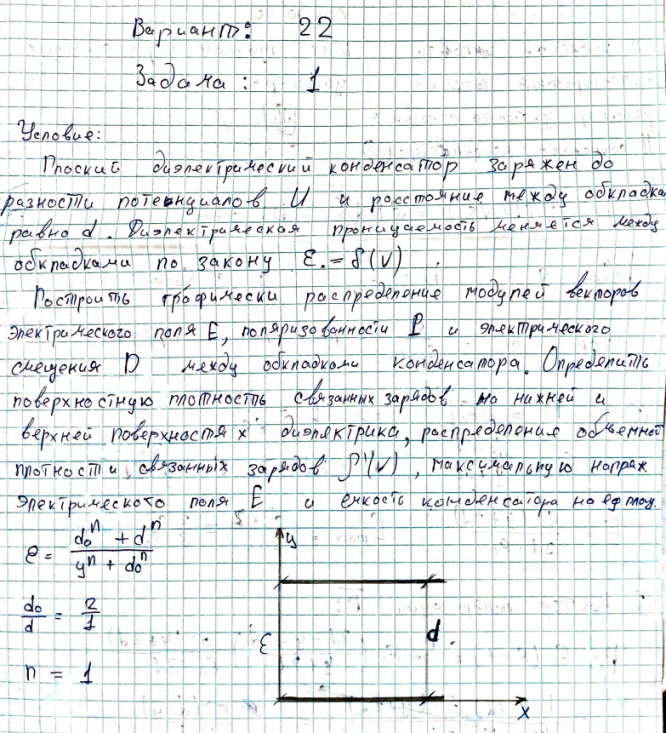 Вариант: 22
Задача: 1
Условие:
Плоский диэлектрический конденсатор заряжен до
разности потенциалов U и расстояние между обкладка
равно d. Диэлектрическая проницаемость меняется между
обкладками по закону ε = f(y).
Построить графически распределение модулей векторов
электрического поля E, поляризованности P и электрического
смещения D между обкладками конденсатора. Определить
поверхностную плотность связанных зарядов на нижней и
верхней поверхностях диэлектрика, распределения объемной
плотности связанных зарядов ρ'(y), максимальную напряж
электрического поля E и емкость конденсатора на ед площ.
ε = (d₀ⁿ + dⁿ) / (yⁿ + d₀ⁿ)
d₀/d = 2/1
n = 1
y
ε
d
x